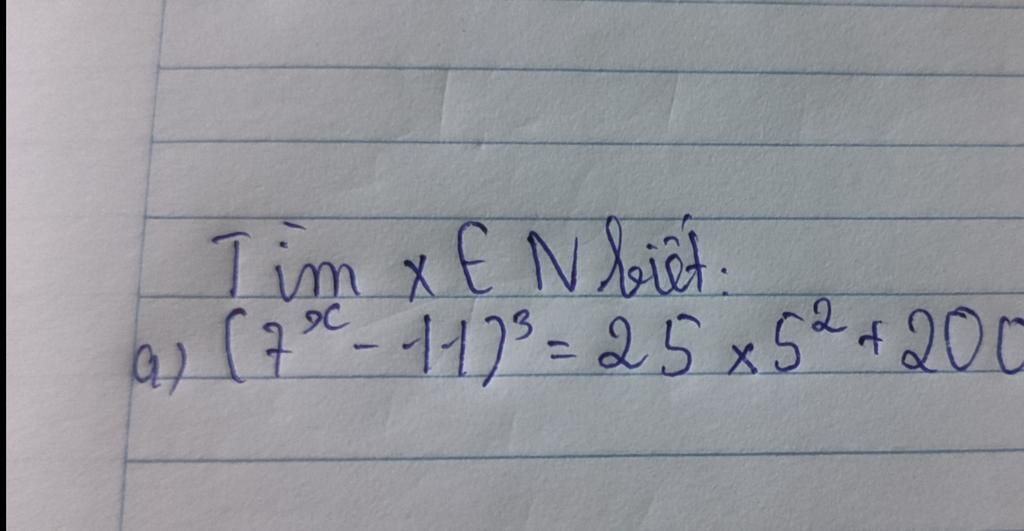 Tìm x ∈ N biết:
a) (7^x - 11)^3 = 25 x 5^2 + 200